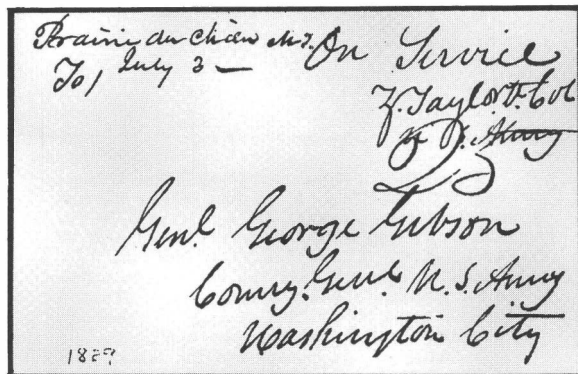 Prairie du Chien M.T.
July 3 —
On Service
Z. Taylor Lt. Col
U. S. Army
25
To,
Genl. George Gibson
Comsy. Genl. U. S. Army
Washington City
1829